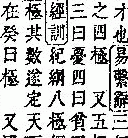 才也易繫辭三
三曰憂四曰貧
之四極 又五極
經訓紀綱八極
極其數遂定天
在癸曰極 又